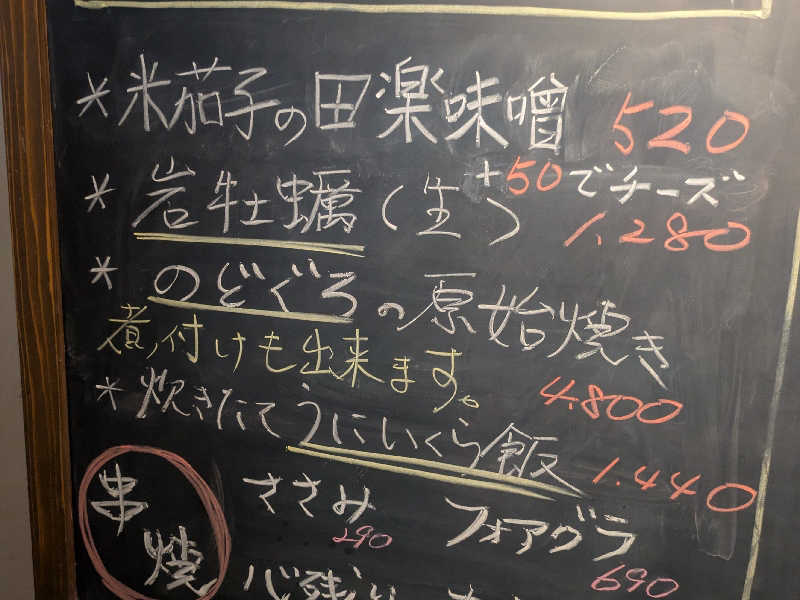 *米茄子の田楽味噌 520
+50でチーズ
*岩牡蠣(生) 1.280
*のどぐろの原始焼き
煮付けも出来ます。 4.800
*炊きたてうにいくら飯 1.440
串焼 ささみ 290 フォアグラ 690